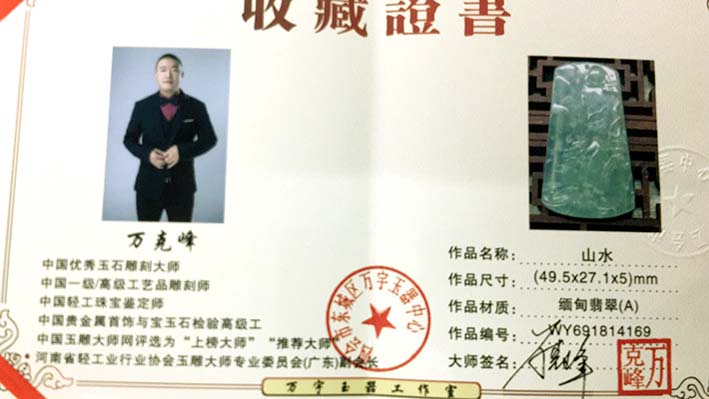 收藏證書
万克峰
中国优秀玉石雕刻大师
中国一级/高级工艺品雕刻师
中国轻工珠宝鉴定师
中国贵金属首饰与宝玉石检验高级工
中国玉雕大师网评选为“上榜大师”“推荐大师”
河南省轻工业行业协会玉雕大师专业委员会(广东)副会长
市东城区万字玉器中心
作品名称： 山水
作品尺寸： (49.5x27.1x5)mm
作品材质： 缅甸翡翠(A)
作品编号： WY691814169
大师签名：
万克峰
万字玉器工作室